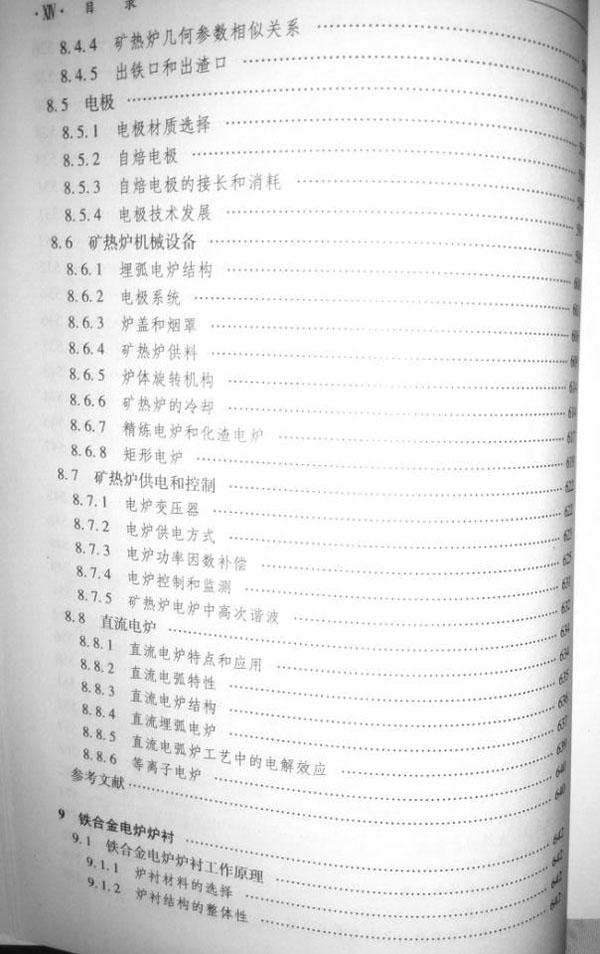 ·XIV· 目 录
8.4.4 矿热炉几何参数相似关系
8.4.5 出铁口和出渣口
8.5 电极
8.5.1 电极材质选择
8.5.2 自焙电极
8.5.3 自焙电极的接长和消耗
8.5.4 电极技术发展
8.6 矿热炉机械设备
8.6.1 埋弧电炉结构
8.6.2 电极系统
8.6.3 炉盖和烟罩
8.6.4 矿热炉供料
8.6.5 炉体旋转机构 614
8.6.6 矿热炉的冷却 614
8.6.7 精炼电炉和化渣电炉 617
8.6.8 矩形电炉 619
8.7 矿热炉供电和控制 622
8.7.1 电炉变压器 622
8.7.2 电炉供电方式 623
8.7.3 电炉功率因数补偿 625
8.7.4 电炉控制和监测 631
8.7.5 矿热炉电炉中高次谐波 632
8.8 直流电炉 634
8.8.1 直流电炉特点和应用 634
8.8.2 直流电弧特性 635
8.8.3 直流电炉结构 636
8.8.4 直流埋弧电炉 637
8.8.5 直流电弧炉工艺中的电解效应 639
8.8.6 等离子电炉 640
参考文献 640
9 铁合金电炉炉衬 642
9.1 铁合金电炉炉衬工作原理 642
9.1.1 炉衬材料的选择 642
9.1.2 炉衬结构的整体性 642